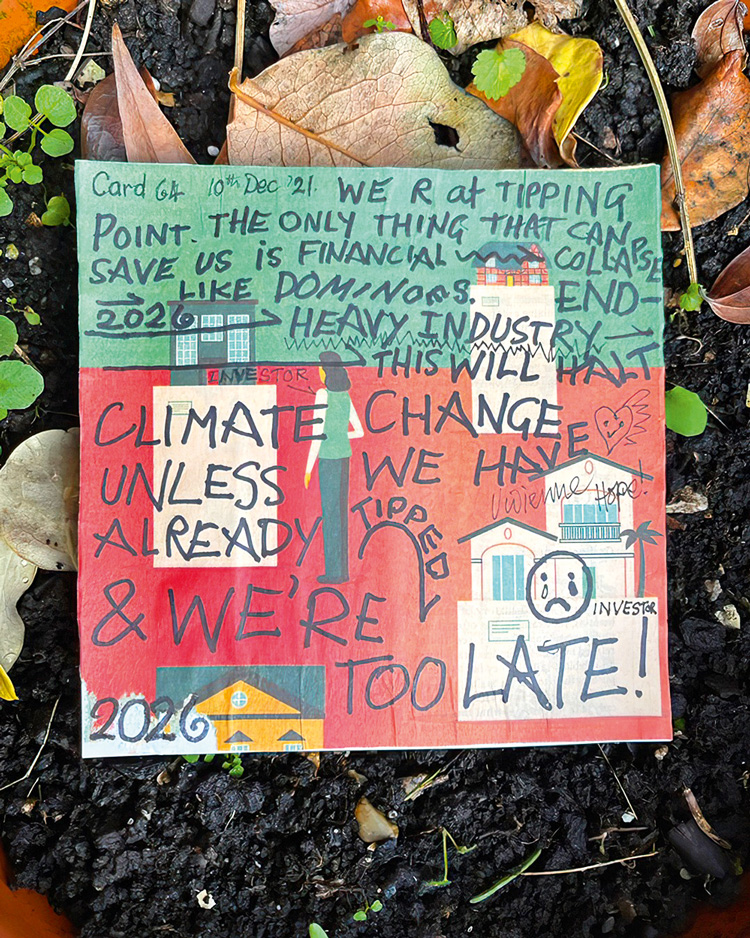 Card 64 10th Dec '21. WE R at TIPPING
POINT. THE ONLY THING THAT CAN
SAVE US is FINANCIAL COLLAPSE
LIKE DOMINOES. END-
2026 HEAVY INDUSTRY
THIS WILL HALT
INVESTOR
CLIMATE CHANGE
UNLESS WE HAVE
Vivienne Hope!
ALREADY TIPPED
& WE'RE
INVESTOR
TOO LATE!
2026